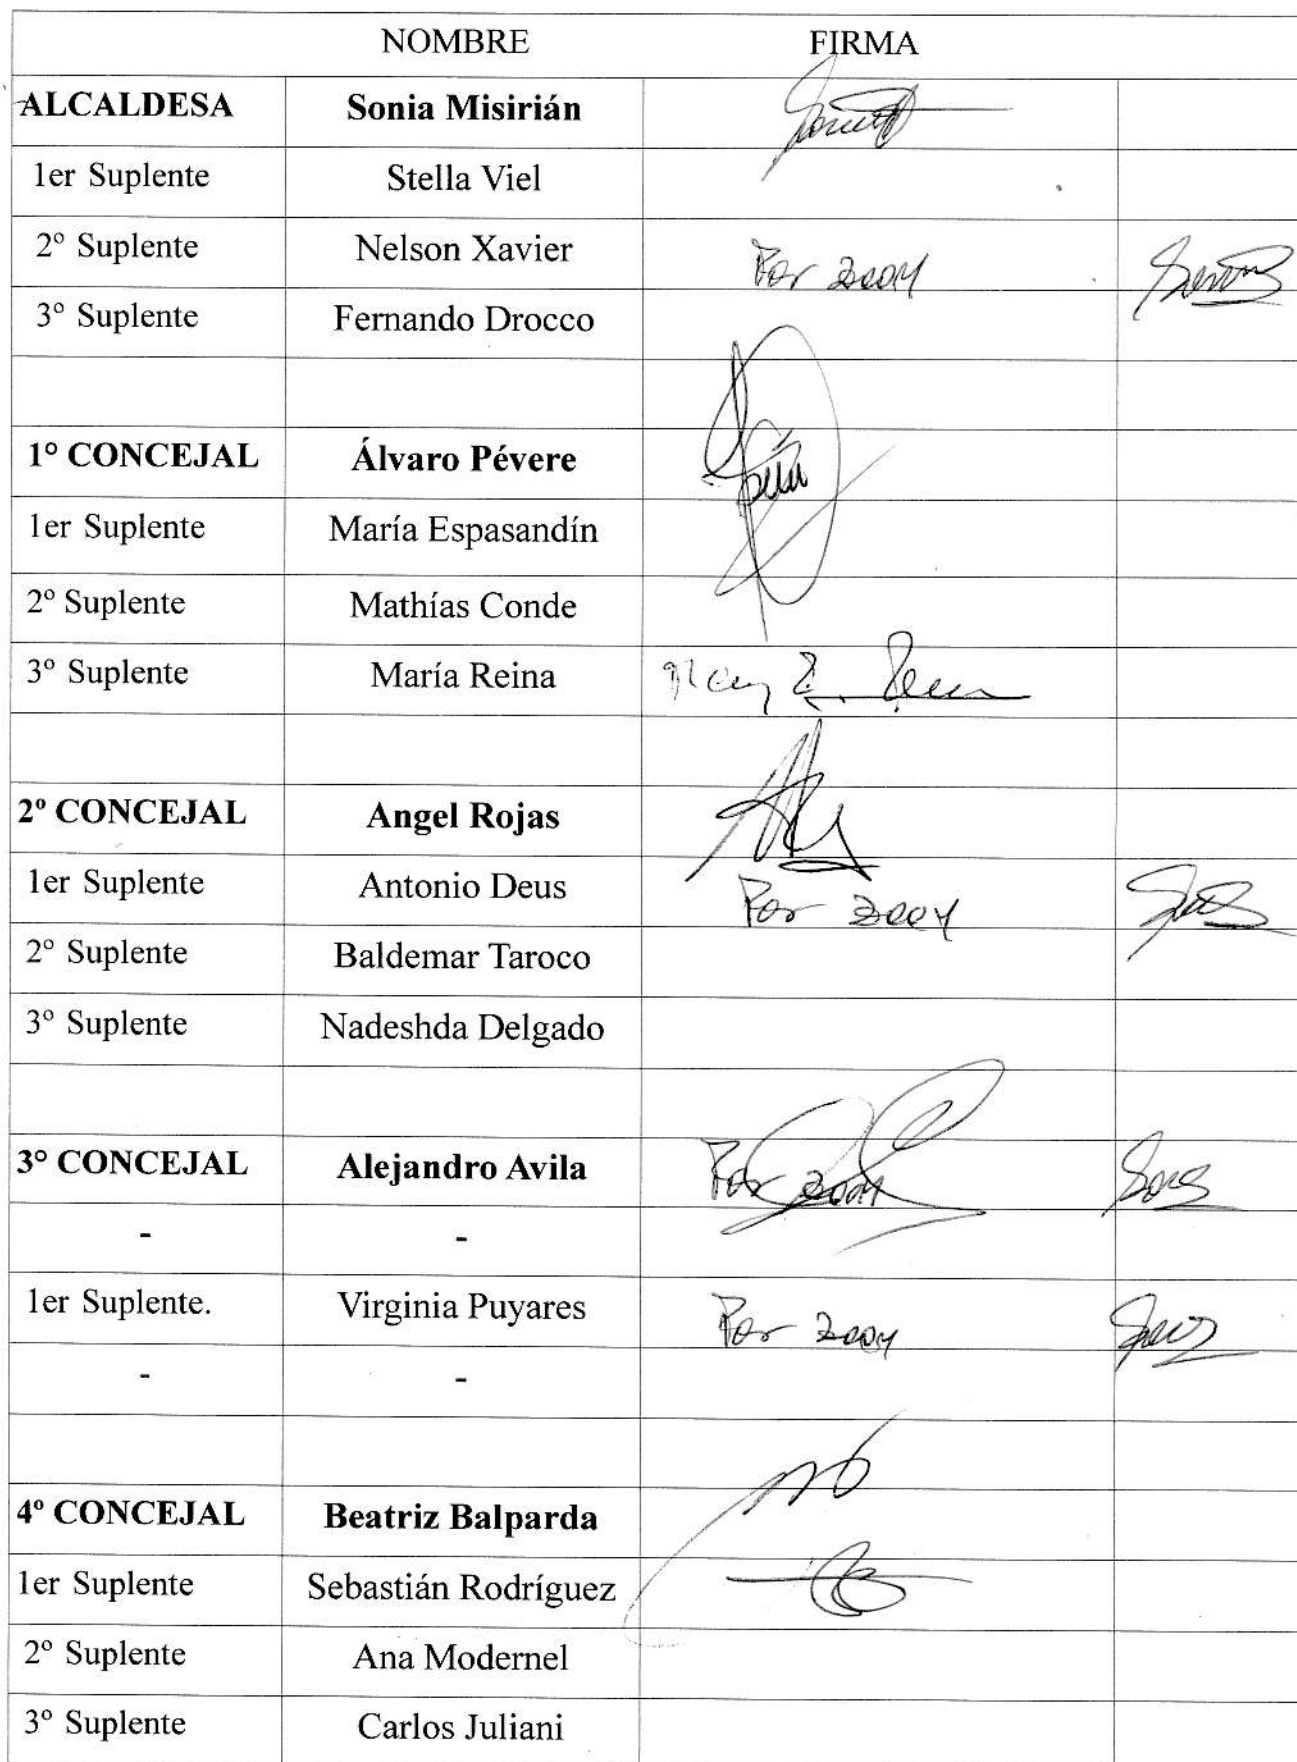 NOMBRE FIRMA
ALCALDESA Sonia Misirián
1er Suplente Stella Viel
2º Suplente Nelson Xavier Por zoom
3º Suplente Fernando Drocco
1º CONCEJAL Álvaro Pévere
1er Suplente María Espasandín
2º Suplente Mathías Conde
3º Suplente María Reina
2º CONCEJAL Angel Rojas
1er Suplente Antonio Deus Por zoom
2º Suplente Baldemar Taroco
3º Suplente Nadeshda Delgado
3º CONCEJAL Alejandro Avila Por zoom
- -
1er Suplente. Virginia Puyares Por zoom
- -
4º CONCEJAL Beatriz Balparda
1er Suplente Sebastián Rodríguez
2º Suplente Ana Modernel
3º Suplente Carlos Juliani